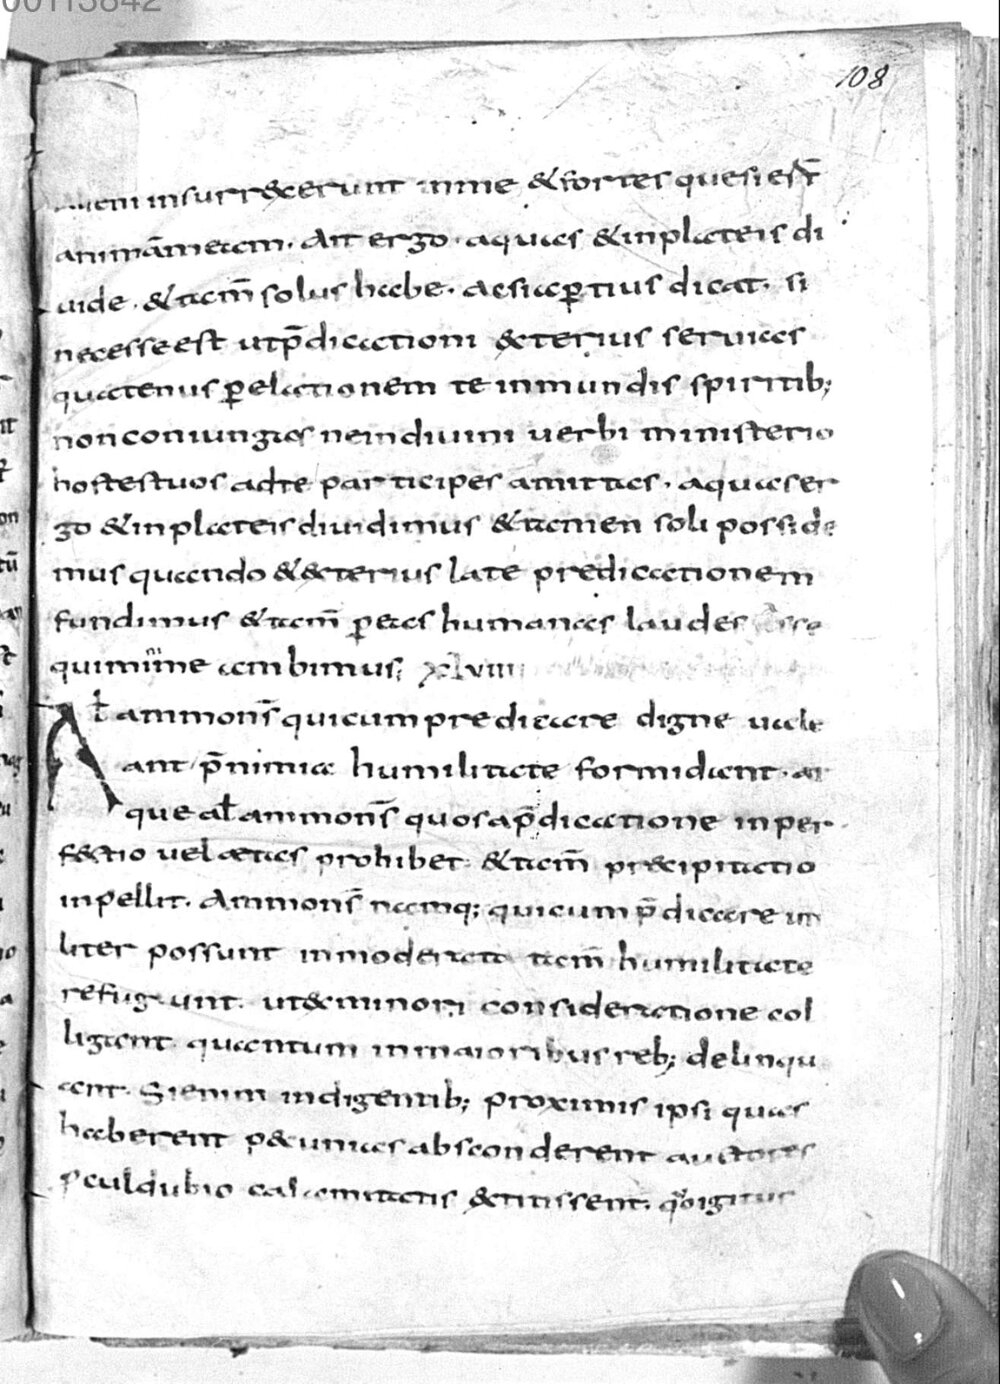 00113842
108
insurr&cerunt inme &fortes quesiert̄
animā meam. Ait ergo. aquas &inplateis di
uide. &tam̄ solus habe. acsi ap̄tius dicat. si
necesse est ut p̄dicationi &terius seruias
quatenus ꝑelationem te inmundis spiritib;
non coniungas nein diuini uerbi ministerio
hostestuos adte participes amittas. aquas er
go &inplateis diuidimus &tamen soli posside
mus quando &&terius late predicationem
fundimus &tam̄ ꝑeas humanas laudes
quiminime ambimus; xlviiii
Al̄ ammonen̄s quicum predicare digne uale
ant p̄nimia humilitate formidant. at
que al̄ ammonen̄s quos ap̄dicatione inper
f&ctio uel aetas prohibet &tam̄ praecipitatio
inpellit. Ammonen̄s namq; quicum p̄dicare uti
liter possunt inmoderata tam̄ humilitate
refugiunt. ut&minori consideratione col
ligant quantum inmaioribus reb; delinqu
ant. Si enim indigentib; proximis ipsi quas
haberent p&cunias absconderent auctores
culdubio calamitatis &titissent. q̊ igitur